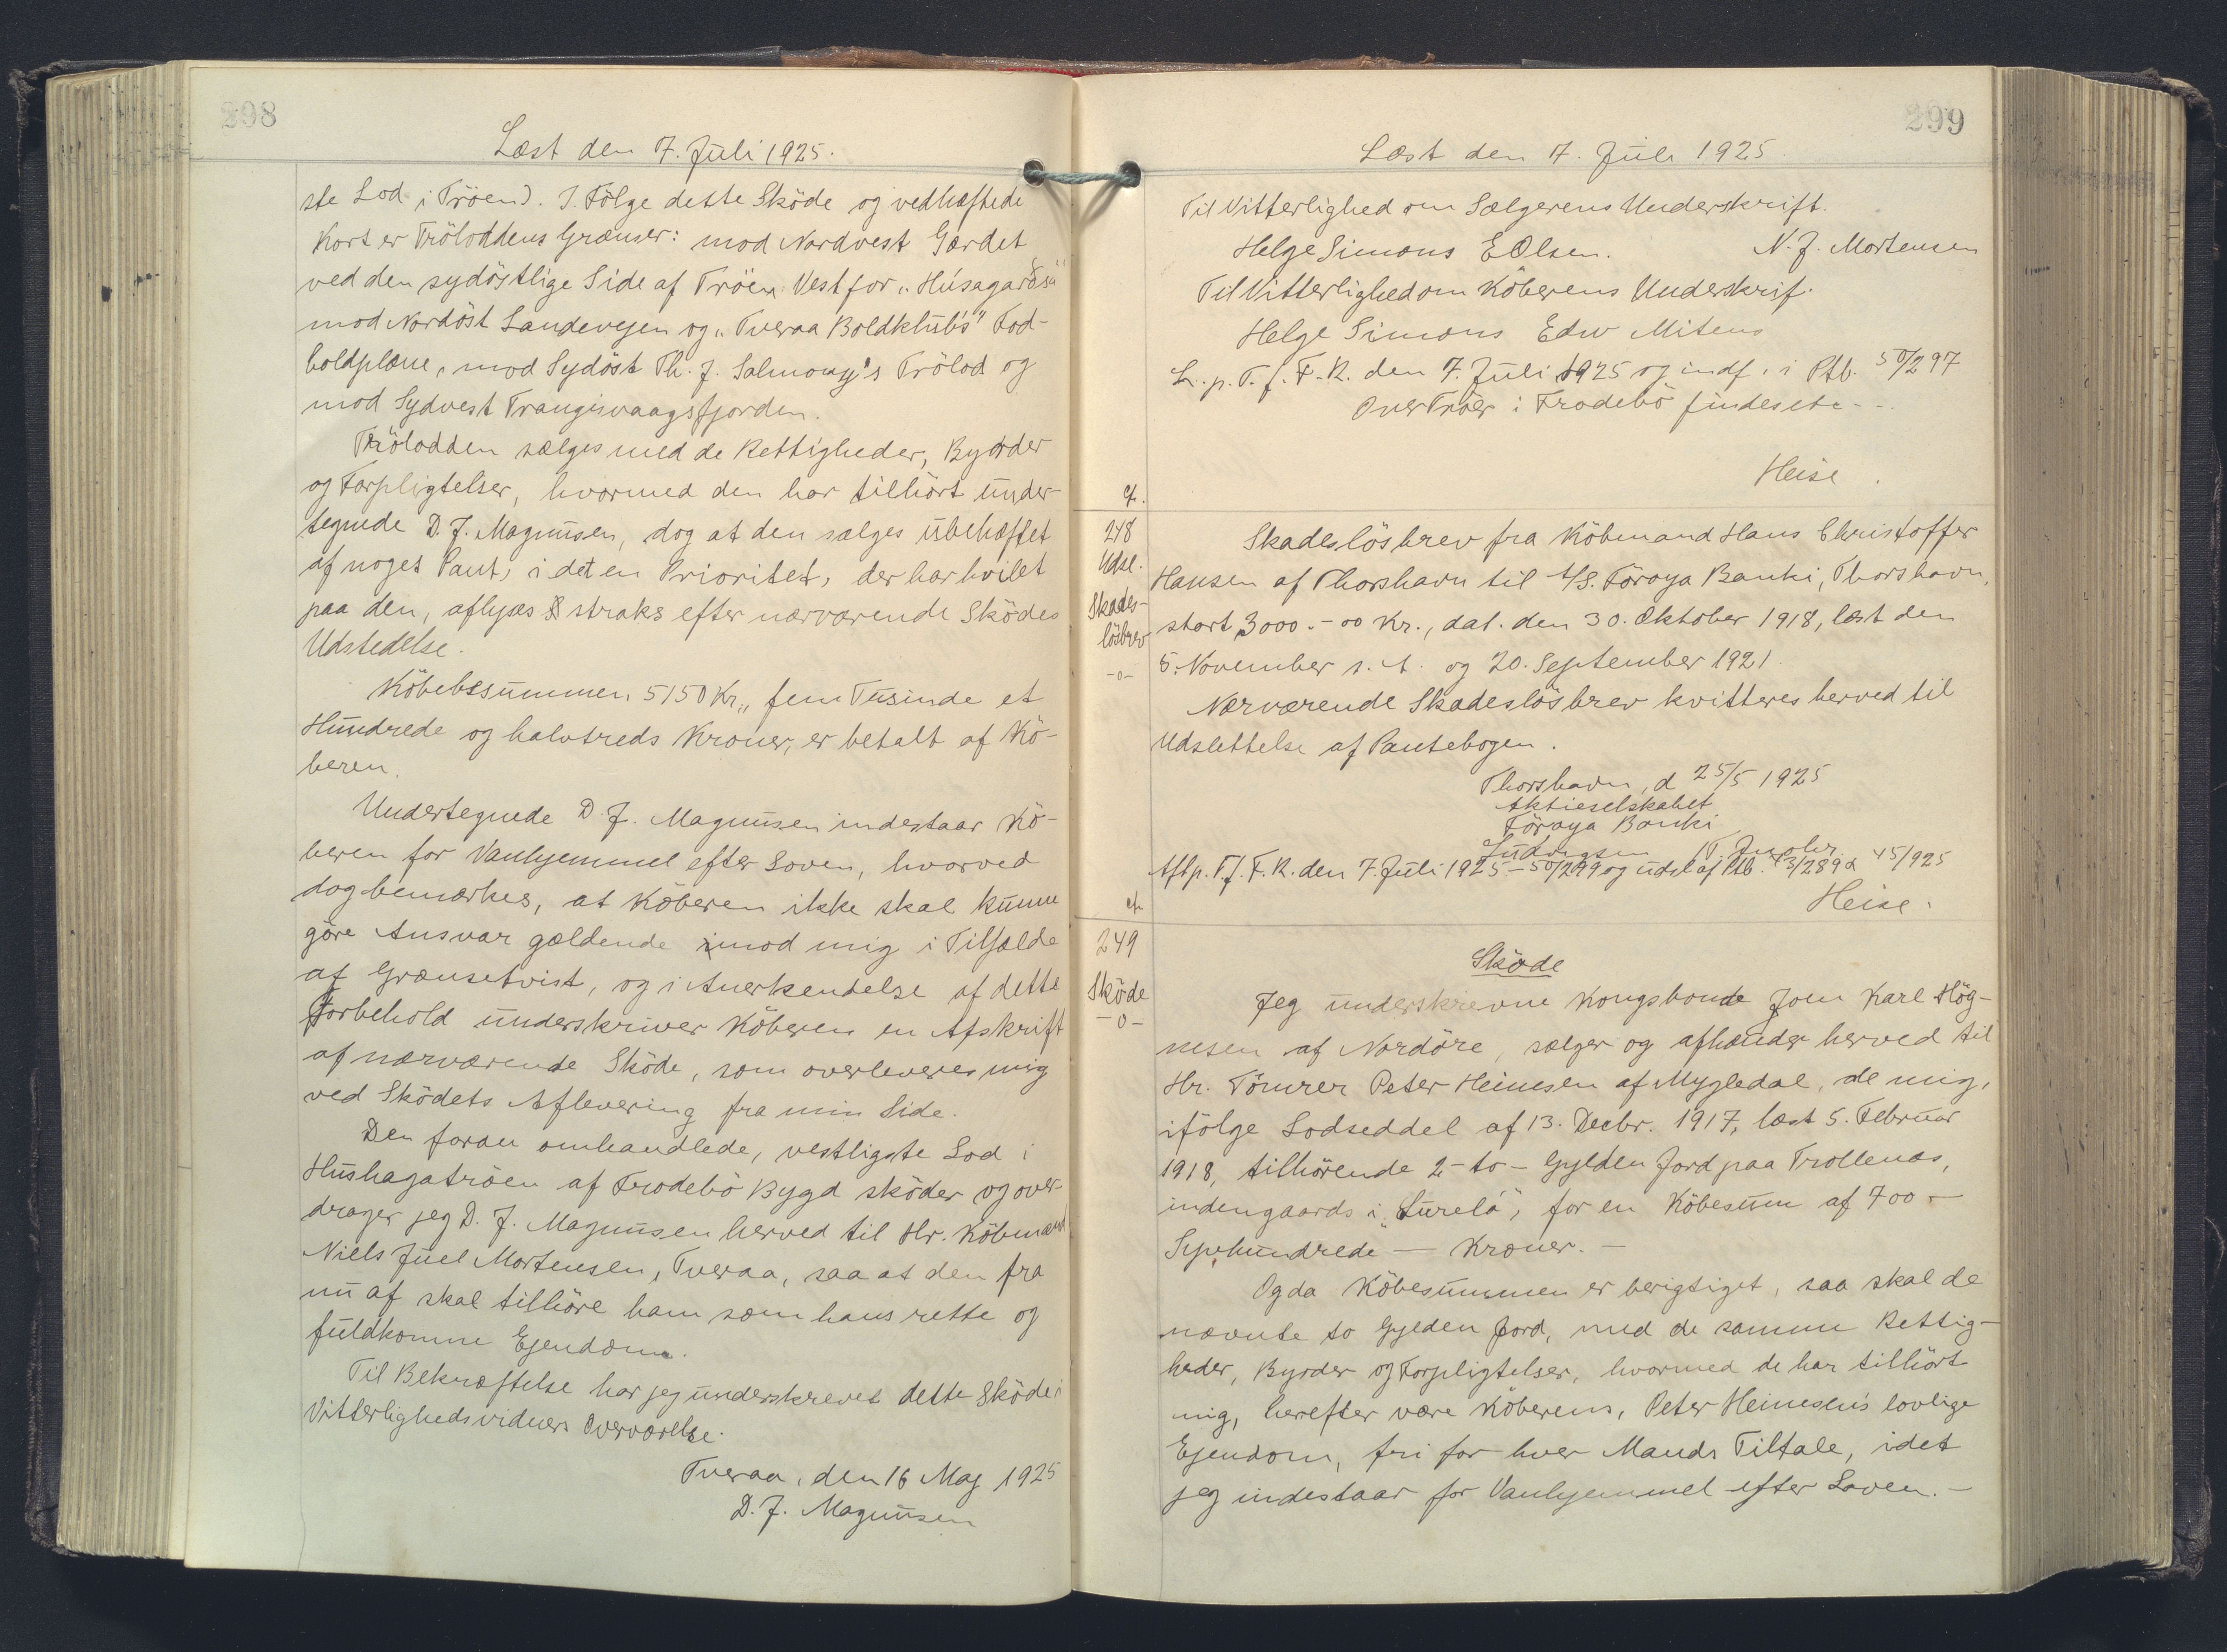 298
Læst den 7. Juli 1925.
ste Lod i Tröen). I Fölge dette Sköde og vedhæftede
Kort er Trölodden's Grænser: mod Nordvest Gærdet
ved den sydöstlige Side af Tröen Vest for "Húsagarðsá"
mod Nordöst Landevejen og "Tveraa Boldklub's" Fod-
boldplæne, mod Sydöst Th. J. Salmony's Trölod og
mod Sydvest Trangisvaagsfjorden.
Trölodden sælges med de Rettigheder, Byrder
og Forpligtelser, hvormed den har tilhört under-
tegnede D. J. Magnusen, dog at den sælges ubehæftet
af noget Pant, i det en Prioritet, der har hvilet
paa den, aflyses straks efter nærværende Sködes
Udstedelse.
Köbebssummen 5150 Kr,, fem Tusinde et
Hundrede og halvtreds Kroner, er betalt af Kö-
beren.
Undertegnede D. J. Magnusen indestaar Kö-
beren for Vanhjemmel efter Loven, hvorved
dog bemærkes, at Köberen ikke skal kunne
göre Ansvar gældende imod mig i Tilfælde
af Grænsetvist, og i Anerkendelse af dette
Forbehold underskriver Köberen en Afskrift
af nærværende Sköde, som overleveres mig
ved Sködets Aflevering fra min Side.
Den foran omhandlede, vestligste Lod i
Hushagatröen af Frodebö Bygd sköder og over-
drager jeg D. J. Magnusen herved til Hr. Köbmand
Niels Juel Mortensen, Tveraa, saa at den fra
nu af skal tilhöre ham som hans rette og
fuldkomne Ejendom.
Til Bekræftelse har jeg underskrevet dette Sköde i
Vitterlighedsvidners Overværelse.
Tveraa, den 16 Maj 1925
D. J. Magnusen
299
Læst den 7. Juli 1925.
Til Vitterlighed om Sælgerens Underskrift.
Helge Simons E Olsen. N. J. Mortensen
Til Vitterlighed om Köberens Underskrif.
Helge Simons Edw Mitens
L. p. T. f. F. R. den 7. Juli 1925 og indf. i Ptb. 50/297
Over Tröer i Frodebö findes etc - - -
Heise.
cf.
248
Udsl.
Skades-
lösbrev
-o-
Skadeslösbrev fra Köbmand Hans Christoffer
Hansen af Thorshavn til A/S. Föroya Banki, Thorshavn,
stort 3000.-00 Kr., dat. den 30. Oktober 1918, læst den
5. November s. A. og 20. September 1921.
Nærværende Skadeslösbrev kvitteres herved til
Udslettelse af Pantebogen.
Thorshavn, d 25/5 1925
Aktieselskabet
Föroya Banki
Ludvigsen
Afl p. T. f. F. R. den 7. Juli 1925 - 50/299 og udsl af Ptb. 43/289 & 45/925
Heise.
cf.
249
Sköde
-o-
Sköde
Jeg underskrevne Kongsbonde Joen Karl Hög-
nesen af Nordöre, sælger og afhænder herved til
Hr. Tömrer Peter Heinesen af Mygledal, de mig,
ifölge Lodseddel af 13. Decbr. 1917, læst 5. Februar
1918, tilhörende 2 - to - Gylden Jord paa Trollenæs,
indengaards i , for en Köbesum af 700 -
Syvhundrede - Kroner. -
Og da Köbesummen er berigtiget, saa skal de
nævnte to Gylden Jord, med de samme Rettig-
heder, Byrder og Forpligtelser, hvormed de har tilhört
mig, herefter være Köberens, Peter Heinesen's lovlige
Ejendom, fri for hver Mands Tiltale, idet
jeg indestaar for Vanhjemmel efter Loven. -